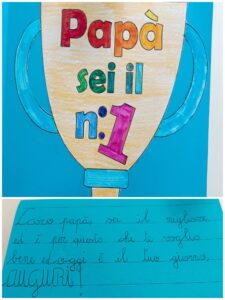 Papà
sei il
n°1
Caro papà, sei il migliore
ed è per questo che ti voglio
bene ed oggi è il tuo giorno,
AUGURI!